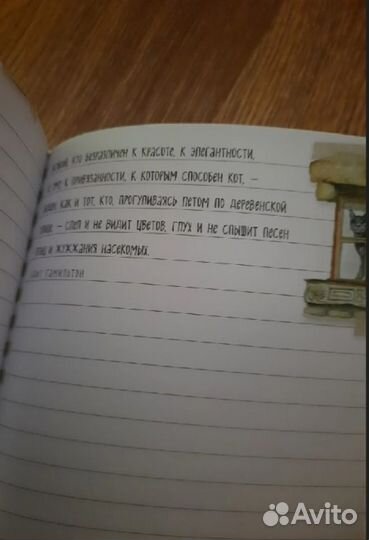 безразличен к красоте, к элегантности,
к привязанности, к которым способен кот, –
как и тот, кто, прогуливаясь летом по деревенской
– слеп и не видит цветов, глух и не слышит песен
и жужжания насекомых.
Гамильтон
Avito